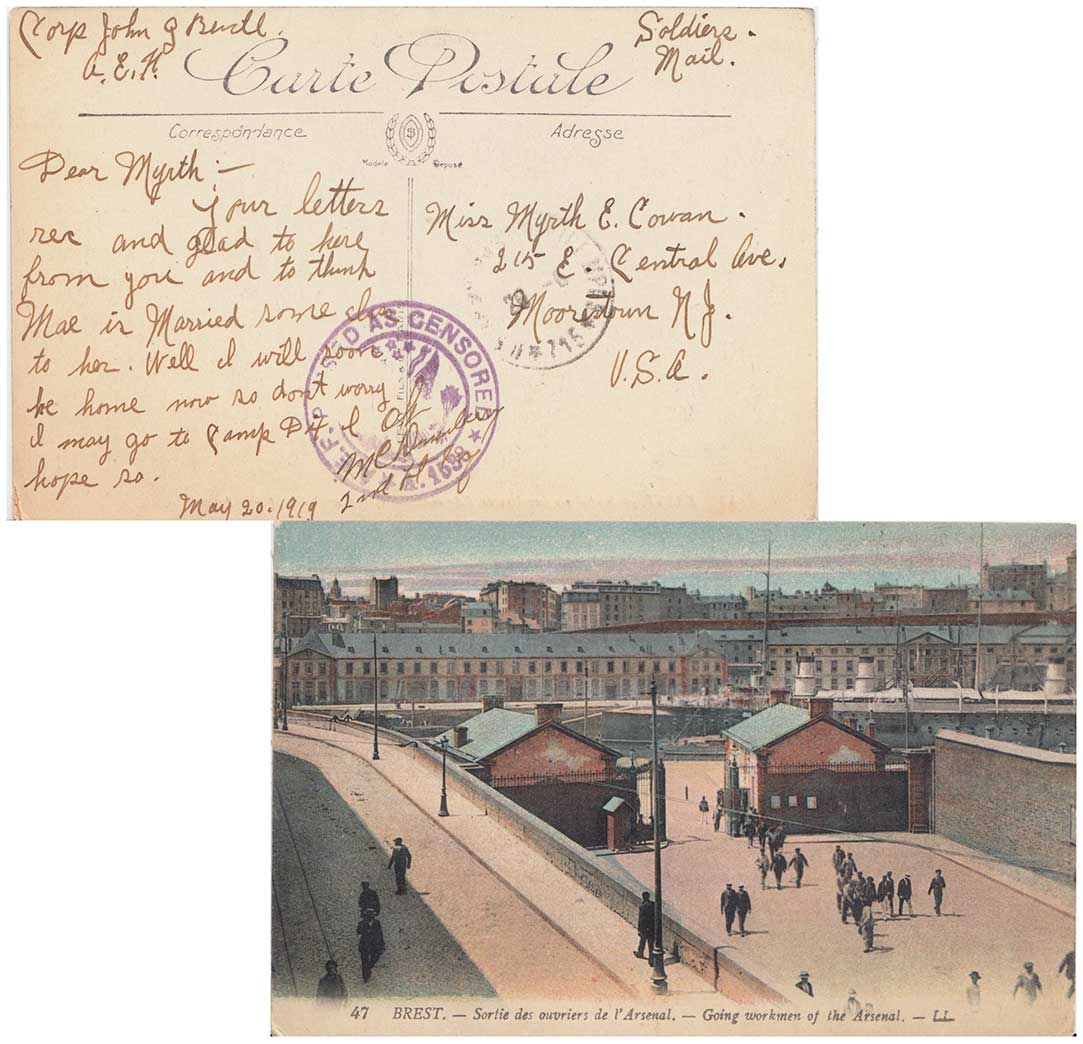 Corp John G
A.E.F.
Soldiers.
Mail.
Carte Postale
Correspondance
Adresse
Modèle Déposé
Dear Myrth :—
Your letters
rec and glad to here
from you and to think
Mae is Married some
to her. Well I will soon
be home now so don't worry
I may go to Camp Dix I
hope so.
May 20. 1919
Miss Myrth E. Cowan.
215 E. Central Ave,
Moorestown N.J.
U.S.A.
AS CENSORED
A.E.F.
OK
2nd Lt
715
47 BREST. — Sortie des ouvriers de l'Arsenal. — Going workmen of the Arsenal. — LL